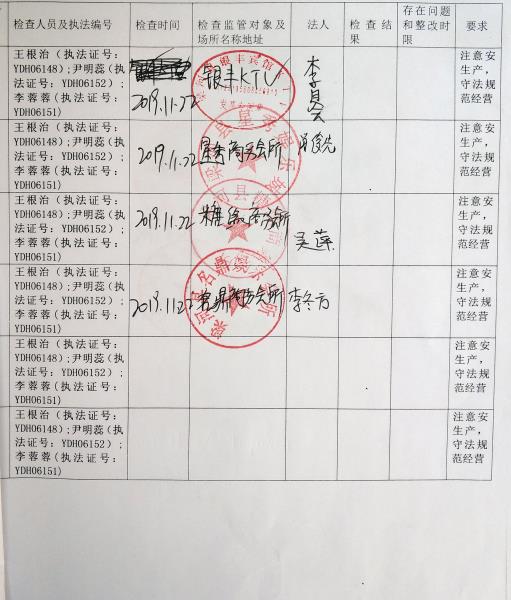 检查人员及执法编号 检查时间 检查监管对象及场所名称地址 法人 检查结果 存在问题和整改时限 要求
王根治（执法证号：
YDH06148）；尹明蕊（执
法证号：YDH06152）；
李蓉蓉（执法证号：
YDH06151）
2019.11.22
银丰KTV
注意安
生产，
守法规
范经营
王根治（执法证号：
YDH06148）；尹明蕊（执
法证号：YDH06152）；
李蓉蓉（执法证号：
YDH06151）
2019.11.22
商务会所
注意安
生产，
守法规
范经营
王根治（执法证号：
YDH06148）；尹明蕊（执
法证号：YDH06152）；
李蓉蓉（执法证号：
YDH06151）
2019.11.22
商务会所
吴萍
注意安
生产，
守法规
范经营
王根治（执法证号：
YDH06148）；尹明蕊（执
法证号：YDH06152）；
李蓉蓉（执法证号：
YDH06151）
2019.11.22
名鼎商务会所
李冬方
注意安
生产，
守法规
范经营
王根治（执法证号：
YDH06148）；尹明蕊（执
法证号：YDH06152）；
李蓉蓉（执法证号：
YDH06151）
注意安
生产，
守法规
范经营
王根治（执法证号：
YDH06148）；尹明蕊（执
法证号：YDH06152）；
李蓉蓉（执法证号：
YDH06151）
注意安
生产，
守法规
范经营